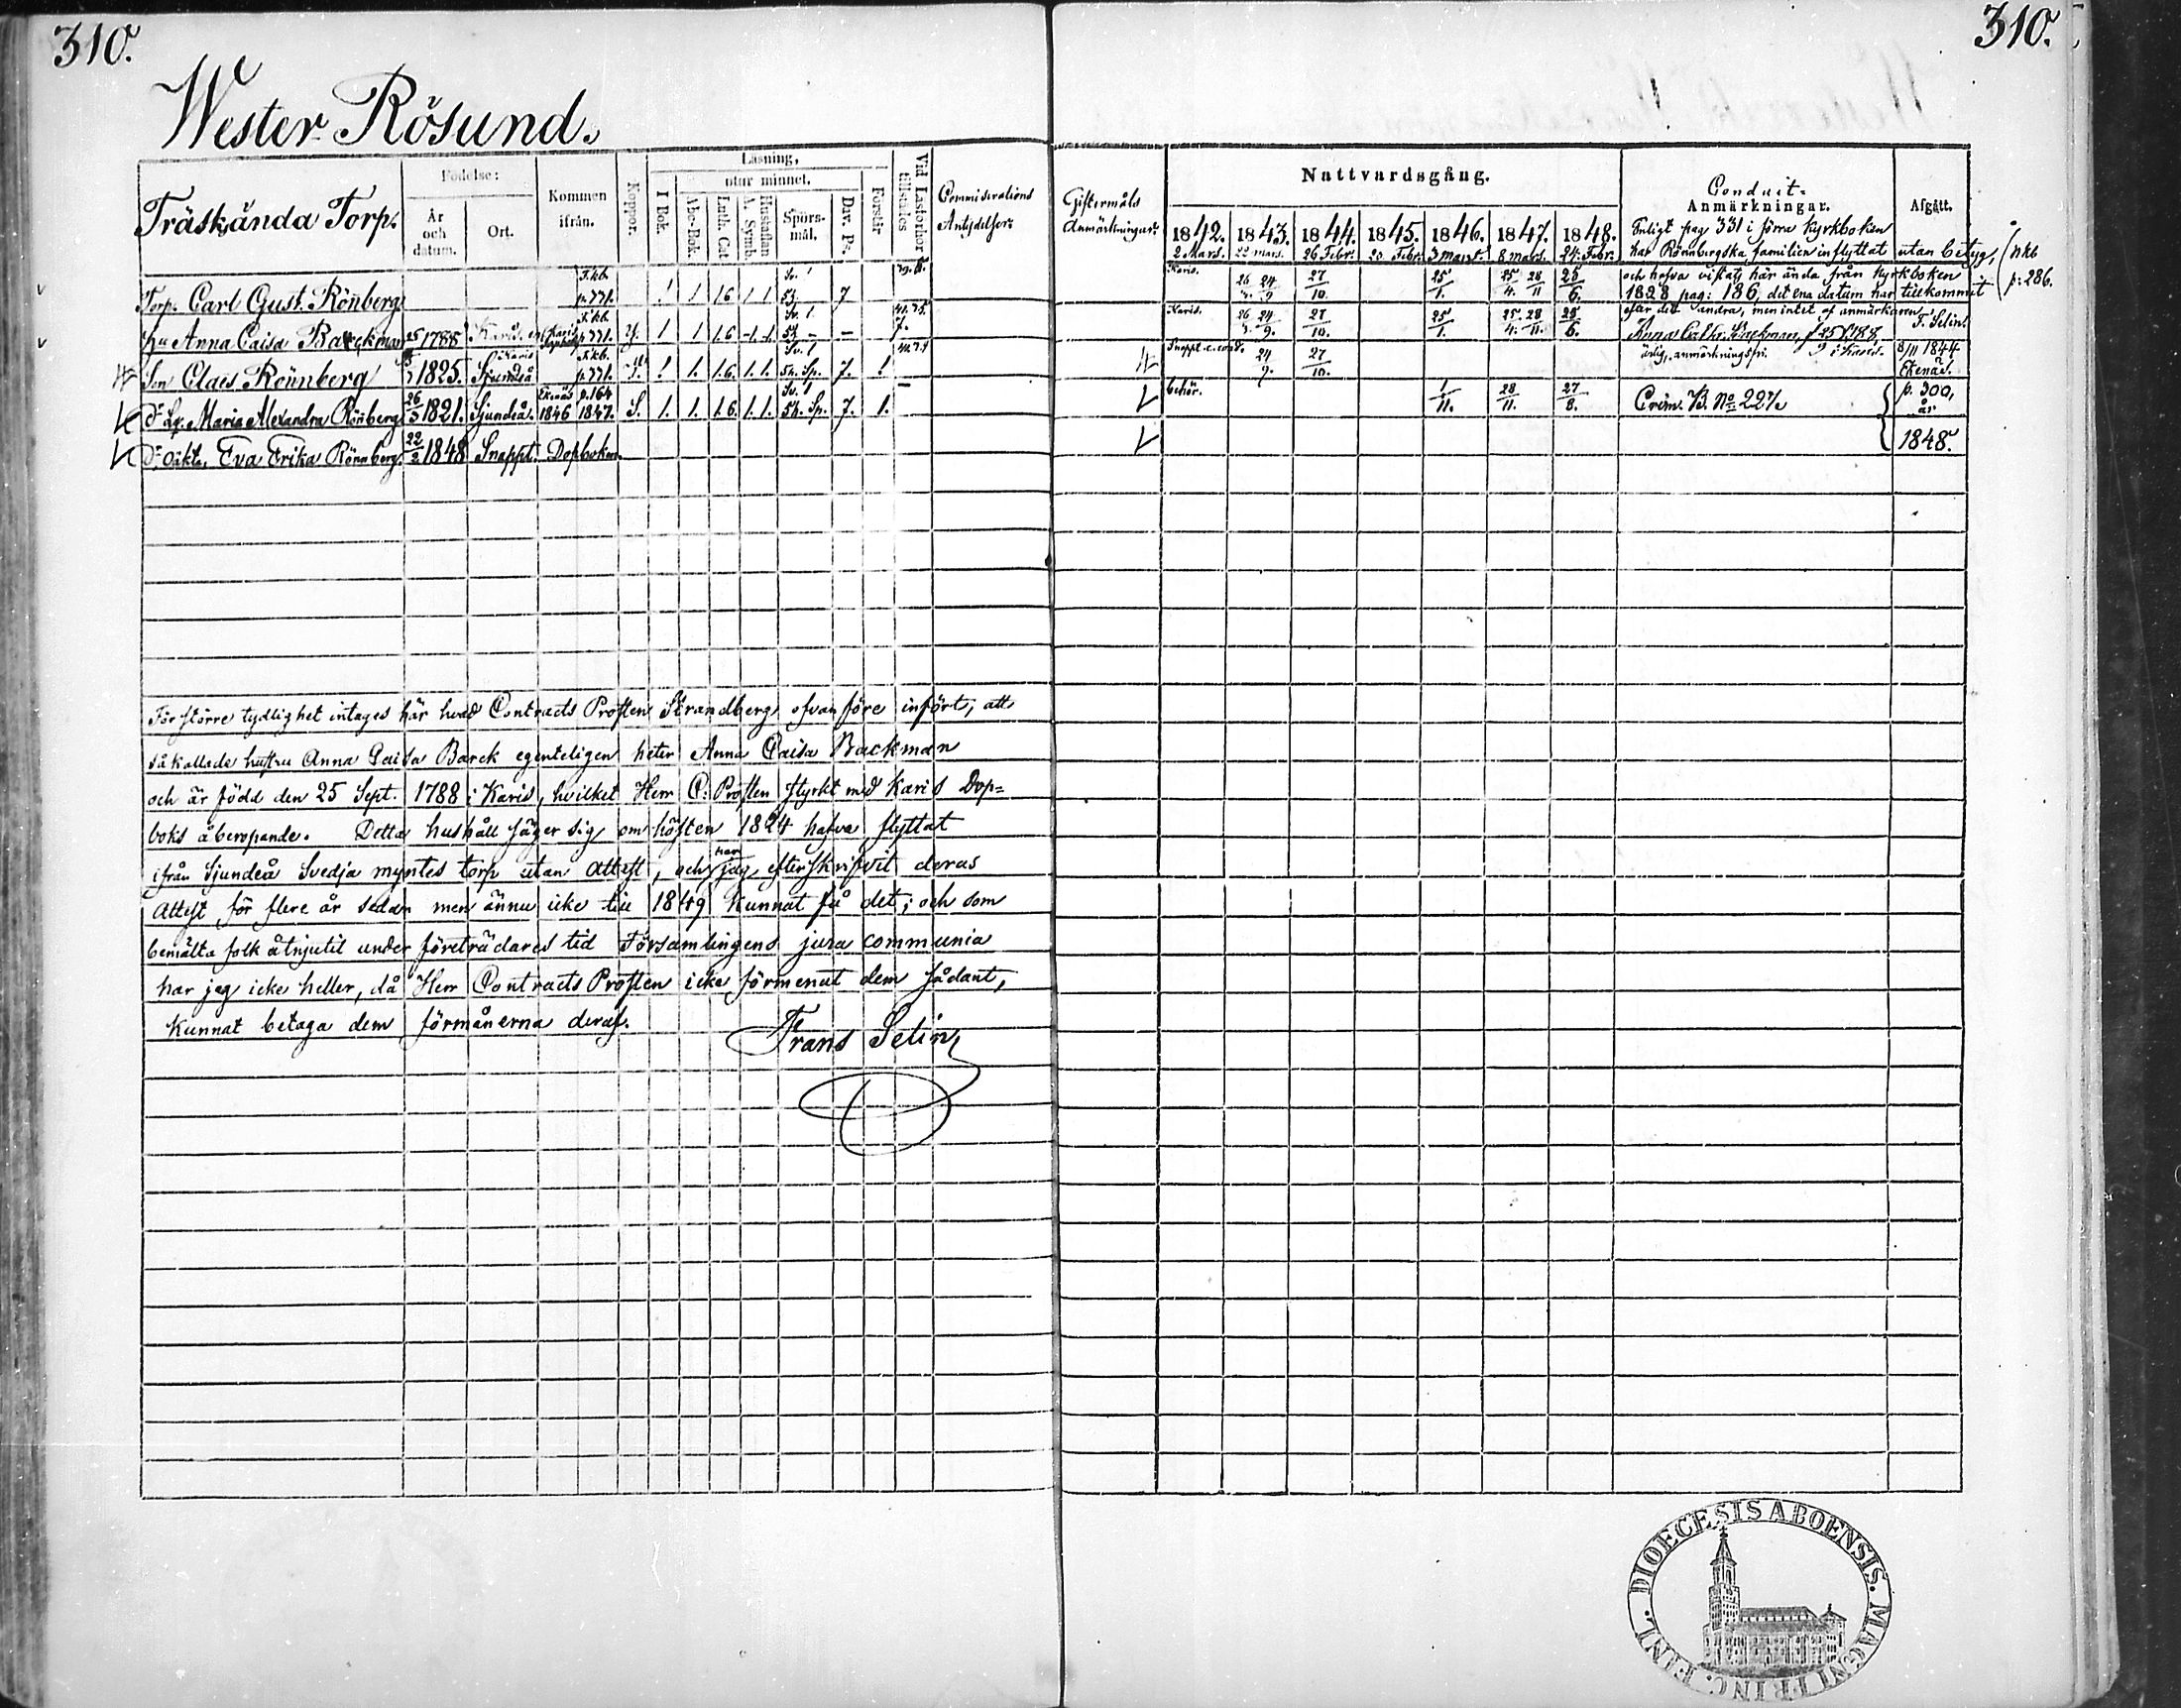 310.
310.
Wester Rösund.
Träskända Torp.
Födelse:
År och datum.
Ort.
Kommen ifrån.
Koppor.
Läsning,
I Bok.
utur minnet.
Abc-Bok.
Luth. Cat.
Hustaflan A. Symb.
Spörs-mål.
Dav. Ps.
Förstår
Vid Läsförhör tillstädes
Commisrations Antydelser
Giftermåls Anmärkningar
Nattvardsgång.
1842. 1843. 1844. 1845. 1846. 1847. 1848.
2 Mars. 22 mars. 26 Febr. 20 Febr. 3 mars. 8 mars. 24 Febr.
Conduit-Anmärkningar.
Afgått.
Enligt pag 331 i förra Kyrkboken
har Rönnbergska familien inflyttat utan betyg,
och hafva vistats här ända från Kyrkboken
1828 pag: 186, det ena datum har tillkommit
efter det andra, men intet af anmärkaren F. Selin.
nkb p: 286.
Torp. Carl Gust. Rönberg F.kb. p.771. 1 1 1.6 1 1 Sv. 1 7 Karis. 26 24/9 27/10. 25/1. 25/4. 28/11 25/6.
Hu Anna Caisa Barckman 25 1788 F.kb. p.771. 1 1 1.6 Karis. 26 24/9. 27/10. 25/1. 25/4. 28/11. 25/6.
Son Claes Rönnberg 1825. Sjundeå F.kb. p.771. S. 1 1. 1.6. 1. 1. Sv. 1 Sp. 7. 1 24/9. 27/10. 8/11 1844 Ekenäs.
Dr Lg. Maria Alexandra Rönberg 26/3 1821. Sjundeå. Ekenäs 1846 p.164 1847. S. 1. 1. 1.6. 1. 1. Sv. 1 Sp. 7. 1. behör. 1/11. 28/11. 27/8. Crim. B. No 227. p. 300, år
Dr oäkta, Eva Erika Rönnberg. 22/2 1848 Snappt. Dopboken. 1848.
För större tydlighet intages här hvad Contracts Prosten Strandberg ofvanföre infört; att
såkallade hustru Anna Caisa Barck egenteligen heter Anna Caisa Backman
och är född den 25 Sept. 1788 i Karis, hvilket Herr C: Prosten styrkt med Karis Dop=
boks åberopande. Detta hushåll säger sig om hösten 1824 hafva flyttat
ifrån Sjundeå Svedja myntes torp utan Attest, och har jag efterskrifvit deras
Attest för flere år sedan men ännu icke till 1849 kunnat få det; och som
bemälta folk åtnjutit under företrädares tid Församlingens jura communia
har jag icke heller, då Herr Contracts Prosten icke förmenat dem sådant,
kunnat betaga dem förmånerna deraf.
Frans Selin
DIOECESIS ABOENSIS. MAGNI PRINC. FINL.